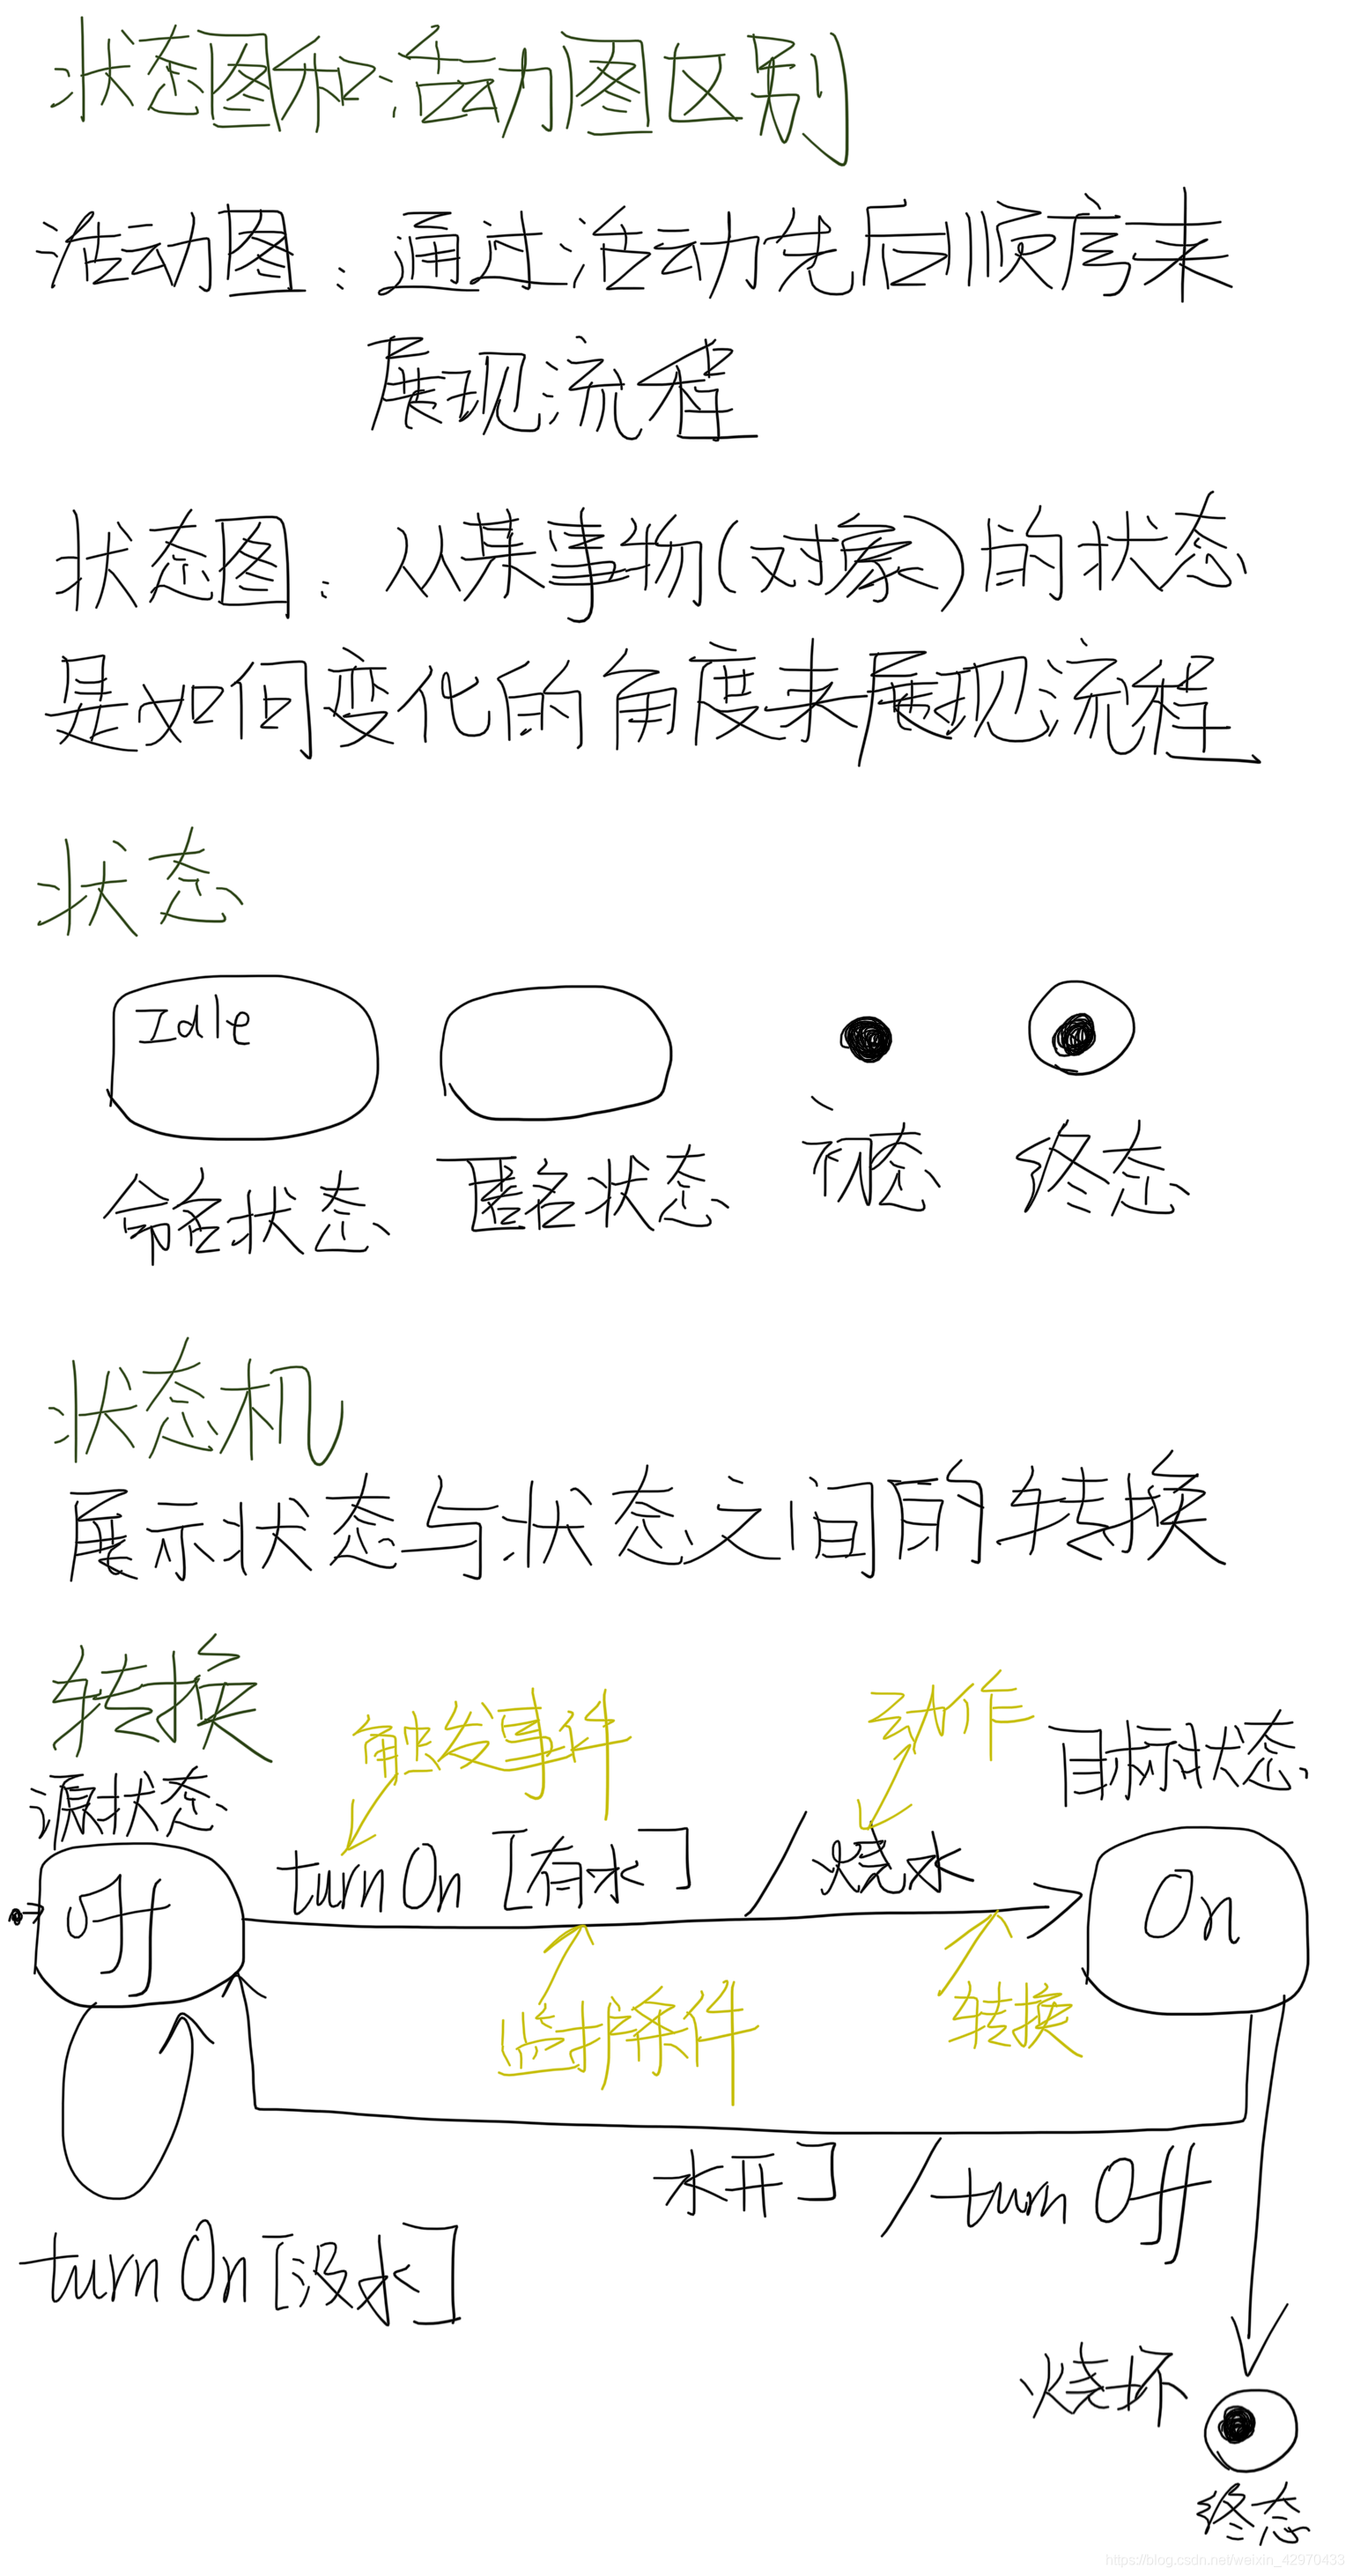 状态图和活动图区别
活动图：通过活动先后顺序来
展现流程
状态图：从某事物(对象)的状态
是如何变化的角度来展现流程
状态
Idle
命名状态 匿名状态 初态 终态
状态机
展示状态与状态之间的转换
转换
触发事件 动作
源状态 目标状态
turn On [有水] / 烧水
Off On
监护条件 转换
水开] / turn Off
turn On [没水]
烧坏
终态
https://blog.csdn.net/weixin_42970433